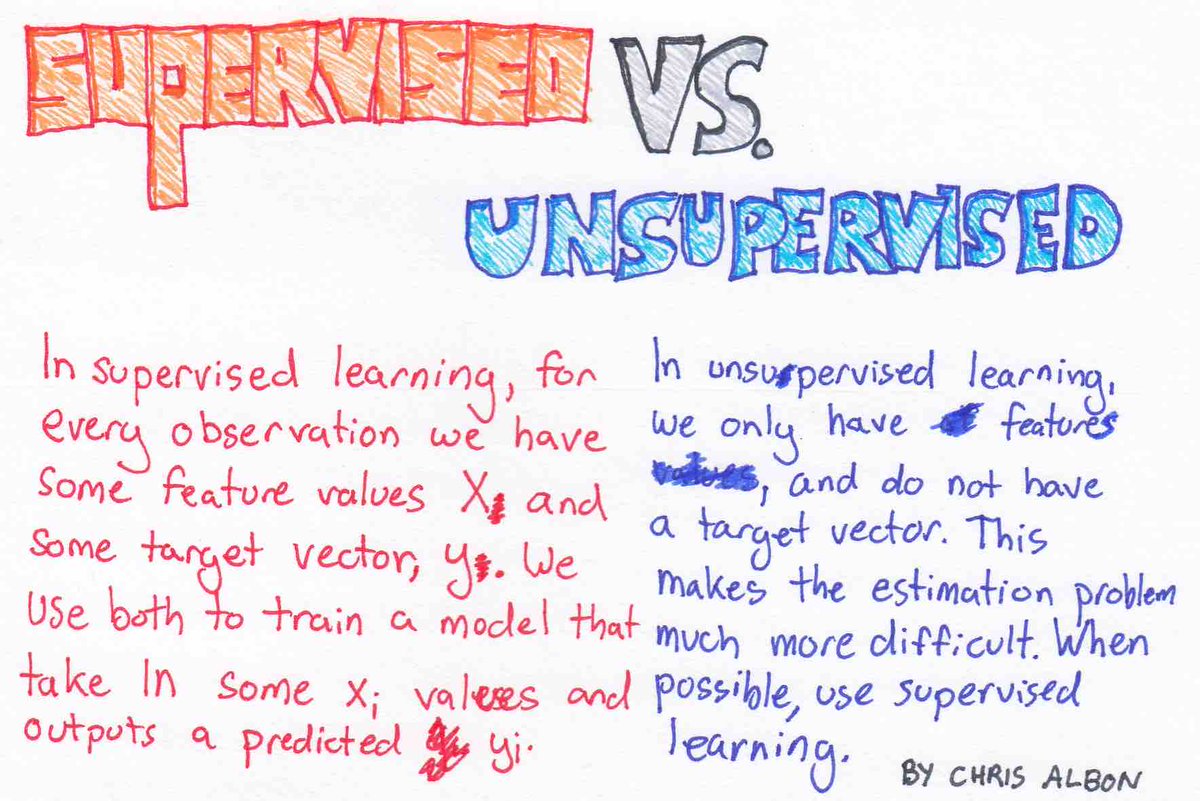 SUPERVISED VS.
UNSUPERVISED
In supervised learning, for
every observation we have
some feature values X and
some target vector, y. We
use both to train a model that
take in some xi values and
outputs a predicted yi.
In unsupervised learning,
we only have features
, and do not have
a target vector. This
makes the estimation problem
much more difficult. When
possible, use supervised
learning.
BY CHRIS ALBON